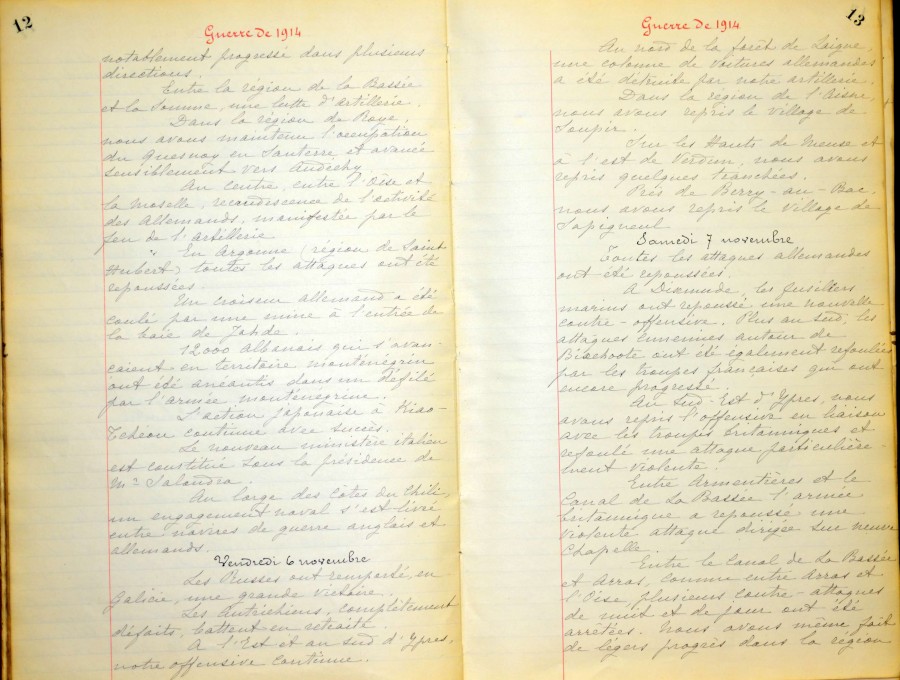 12
Guerre de 1914
notablement progressé dans plusieurs
directions.
Entre la région de la Bassée
et la Somme, une lutte d'artillerie.
Dans la région de Roye,
nous avons maintenu l'occupation
du Quesnoy en Santerre et avancé
sensiblement vers Andechy
Au centre, entre l'Oise et
la Moselle, recrudescence de l'activité
des Allemands, manifestée par le
feu de l'artillerie
En Argonne (région de Saint
Hubert) toutes les attaques ont été
repoussées.
Un croiseur allemand a été
coulé par une mine à l'entrée de
la baie de Jahde.
12.000 Albanais qui s'avan-
çaient en territoire monténégrin
ont été anéantis dans un défilé
par l'armée monténégrine.
L'action Japonaise à Kiao-
Tchéou continue avec succès.
Le nouveau ministère italien
est constitué sous la présidence de
Mr Salandra.
Au large des Côtes du Chili,
un engagement naval s'est livré
entre navires de guerre anglais et
allemands.
Vendredi 6 novembre
Les Russes ont remporté, en
Galicie, une grande victoire.
Les Autrichiens, complètement
défaits, battent en retraite.
A l'Est et au Sud d'Ypres,
notre offensive continue.
13
Guerre de 1914
Au nord de la forêt de Laigue,
une colonne de voitures allemandes
a été détruite par notre artillerie.
Dans la région de l'Aisne,
nous avons repris le village de
Soupir.
Sur les Hauts de Meuse et
à l'est de Verdun, nous avons
repris quelques tranchées.
Près de Berry-au-Bac,
nous avons repris le village de
Sapigneul
Samedi 7 novembre
Toutes les attaques allemandes
ont été repoussées.
A Dixmude, les fusiliers
marins ont repoussé une nouvelle
contre-offensive. Plus au Sud, les
attaques ennemies autour de
Bixchoote ont été également refoulées
par les troupes françaises qui ont
encore progressé.
Au Sud-Est d'Ypres, nous
avons repris l'offensive en liaison
avec les troupes britanniques et
refoulé une attaque particulière-
ment violente.
Entre Armentières et le
Canal de La Bassée l'armée
britannique a repoussé une
violente attaque dirigée sur neuve
Chapelle.
Entre le Canal de La Bassée
et Arras, comme entre Arras et
l'Oise plusieurs contre-attaques
de nuit et de jour ont été
arrêtées. Nous avons même fait
de légers progrès dans la région